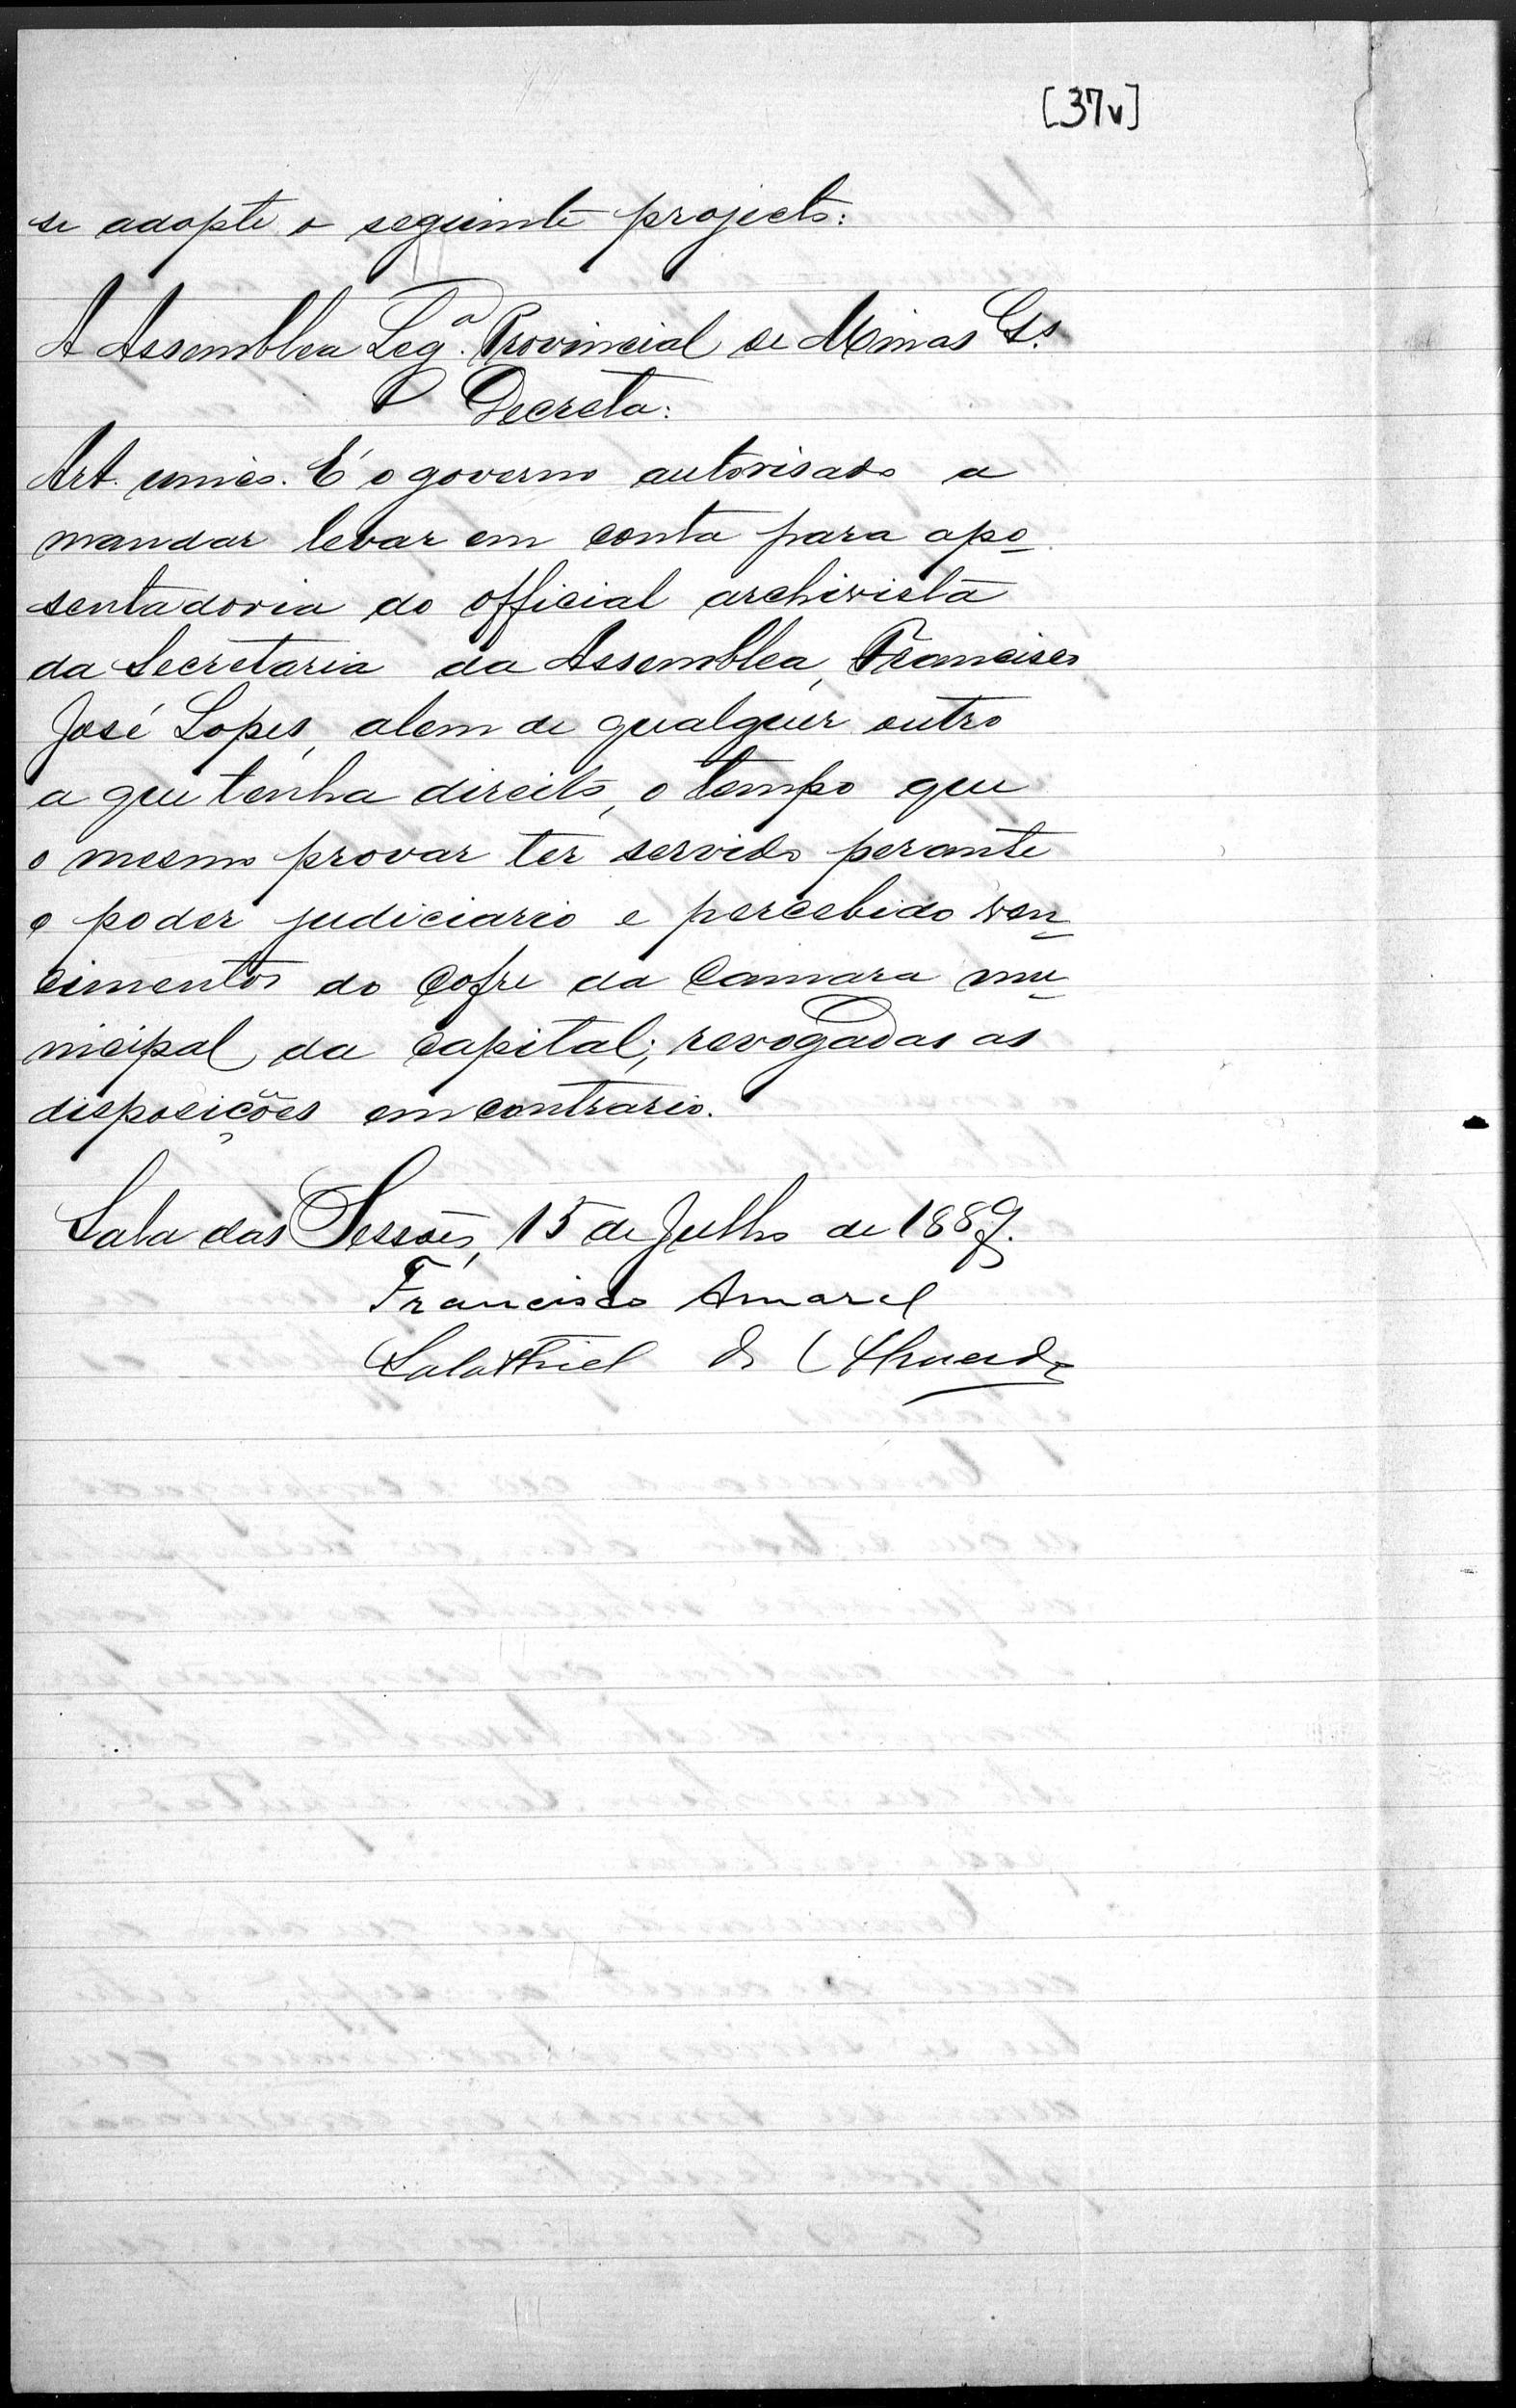 [37v]
se adopte o seguinte projecto:
A Assemblea Leg.ª Provincial de Minas G.s
Decreta:
Art. unico. É o governo autorisado a
mandar levar em conta para apo
sentadoria do official archivista
da Secretaria da Assemblea, Francisco
José Lopes, alem de qualquer outro
a que tenha direito, o tempo que
o mesmo provar ter servido perante
o poder judiciario e percebido ven
cimentos do cofre da Camara mu
nicipal da capital; revogadas as
disposições em contrario.
Sala das Sessões, 15 de Julho de 1889.
Francisco Amaral
Salathiel de Almeida